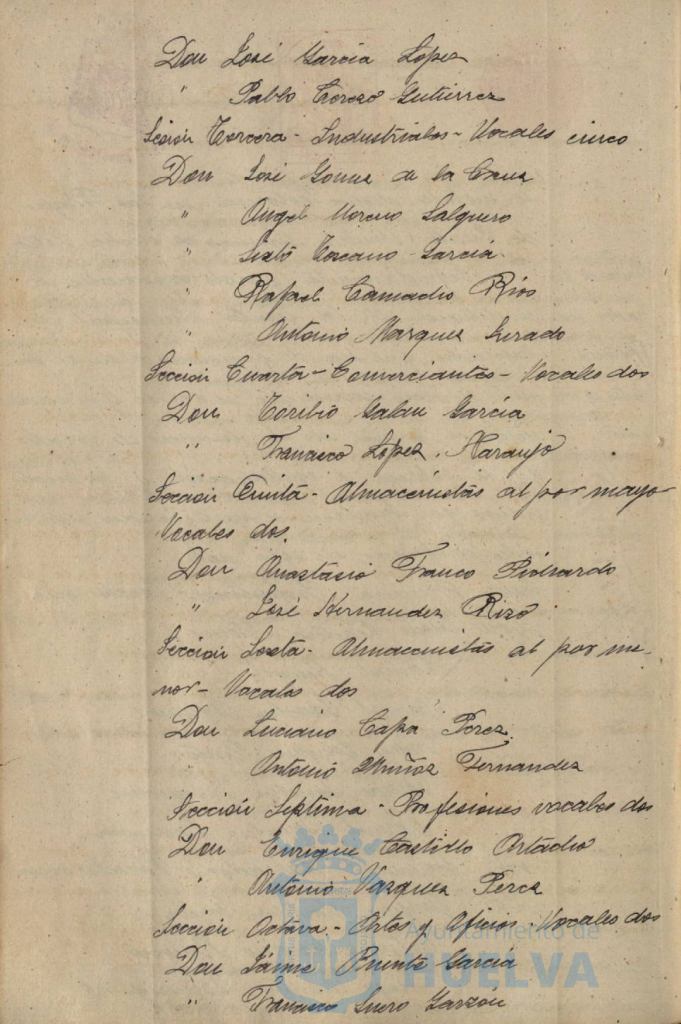 Don José García López
" Pablo Cerezo Gutierrez
Sección Tercera - Industriales - Vocales cinco
Don José Gomez de la Cruz
" Angel Moreno Salguero
" Sixto Toscano García
" Rafael Camacho Rios
" Antonio Marquez
Sección Cuarta - Comerciantes - Vocales dos
Don Toribio Galan García
" Francisco López Naranjo
Sección Quinta - Almacenistas al por mayor
Vocales dos.
Don Anastasio Franco
" José Hernandez Rizo
Sección Sexta - Almacenistas al por me-
nor - Vocales dos
Don Luciano Capa Perez
" Antonio Muñoz Fernandez
Sección Septima - Profesiones vocales dos
Don Enrique Castillo
" Antonio Vazquez Perez
Sección Octava - Artes y Oficios - Vocales dos
Don Jaime Puente García
" Francisco Suero Garzón
Ayuntamiento de
HUELVA